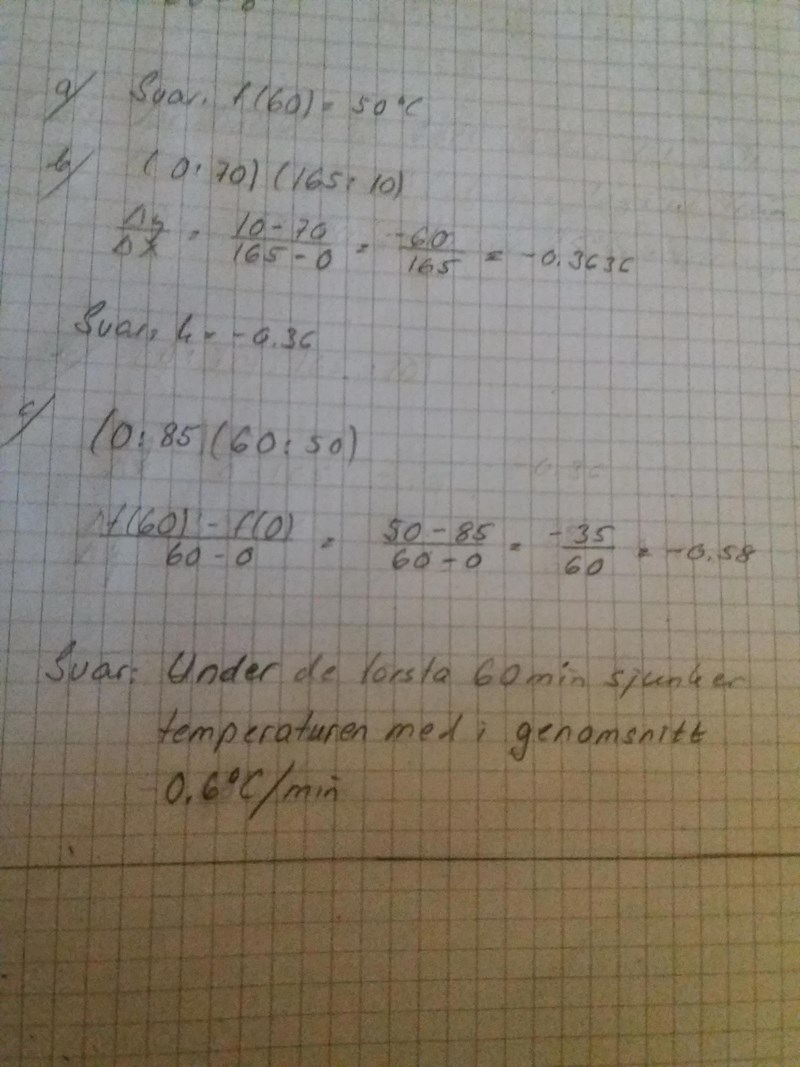 a/ Svar. f(60) = 50°C
b/ (0; 70) (165; 10)
Δy/Δx = 10-70/165-0 = -60/165 = -0.3636
Svar: k = -0.36
c/ (0; 85 (60; 50)
f(60) - f(0)/60-0 = 50-85/60-0 = -35/60 = -0.58
Svar: Under de forsta 60 min sjunker
temperaturen med i genomsnitt
0.6°C/min